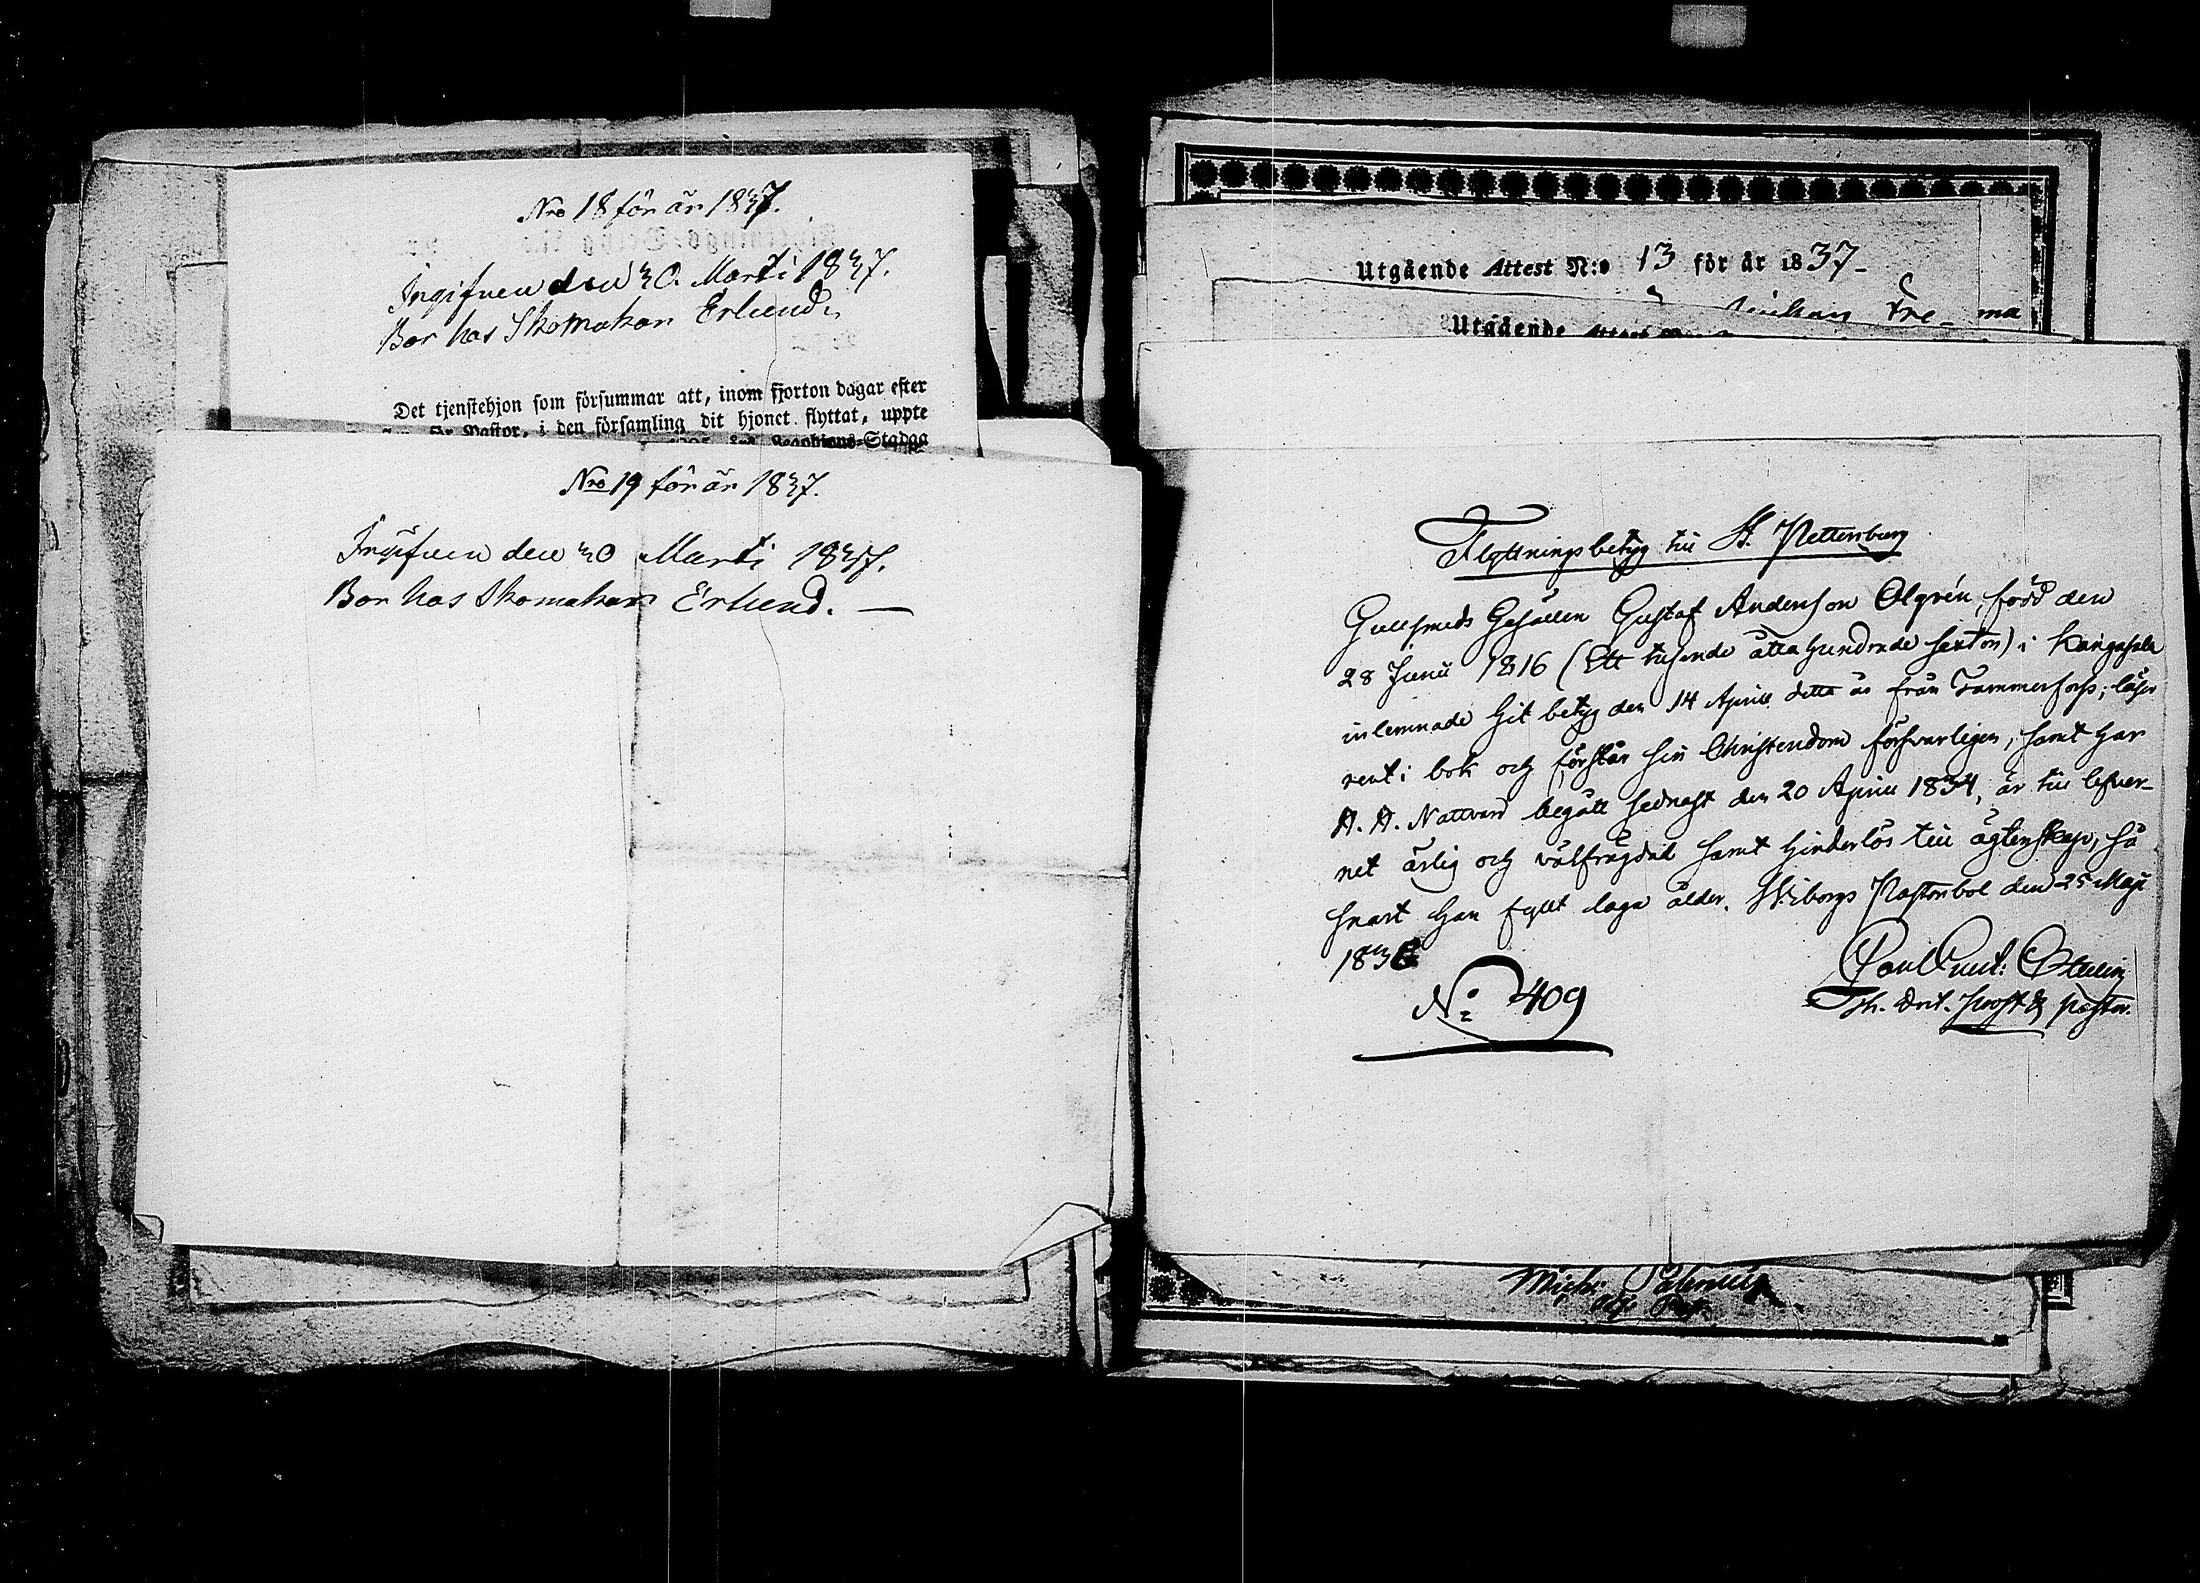 Nro 18 för år 1837.
Ingifven den 30. Marti 1837.
Bor hos Skomakar Erlund.
Det tjenstehjon som försummar att, inom fjorton dagar efter
Pastor, i den församling dit hjonet flyttat, uppte
Nro 19 för år 1837.
Ingifven den 30 Marti 1837.
Bor hos Skomakar Erlund. —
Utgående Attest N:o 13 för år 1837-
Utgående Attest
Flyttningsbetyg till St. Pettersburg
Gullsmeds Gesällen Gustaf Andersson Olgrén, född den
28 Junii 1816 (Ett tusende åttahundrade sexton) i Kangasala
inlemnade hit betyg den 14 April detta år från Tammerfors; läser
rent i bok och förstår sin Christendom försvarligen, samt har
H. H. Nattvard begått sednast den 20 April 1834, är till lefver-
net ärlig och välfrägdad samt hinderlös till ägtenskap, så
snart han fyllt laga ålder. Wiborgs Pastorsbol den 25 Maji
1836
Th. Doct. Prost & Pastor.
No: 409